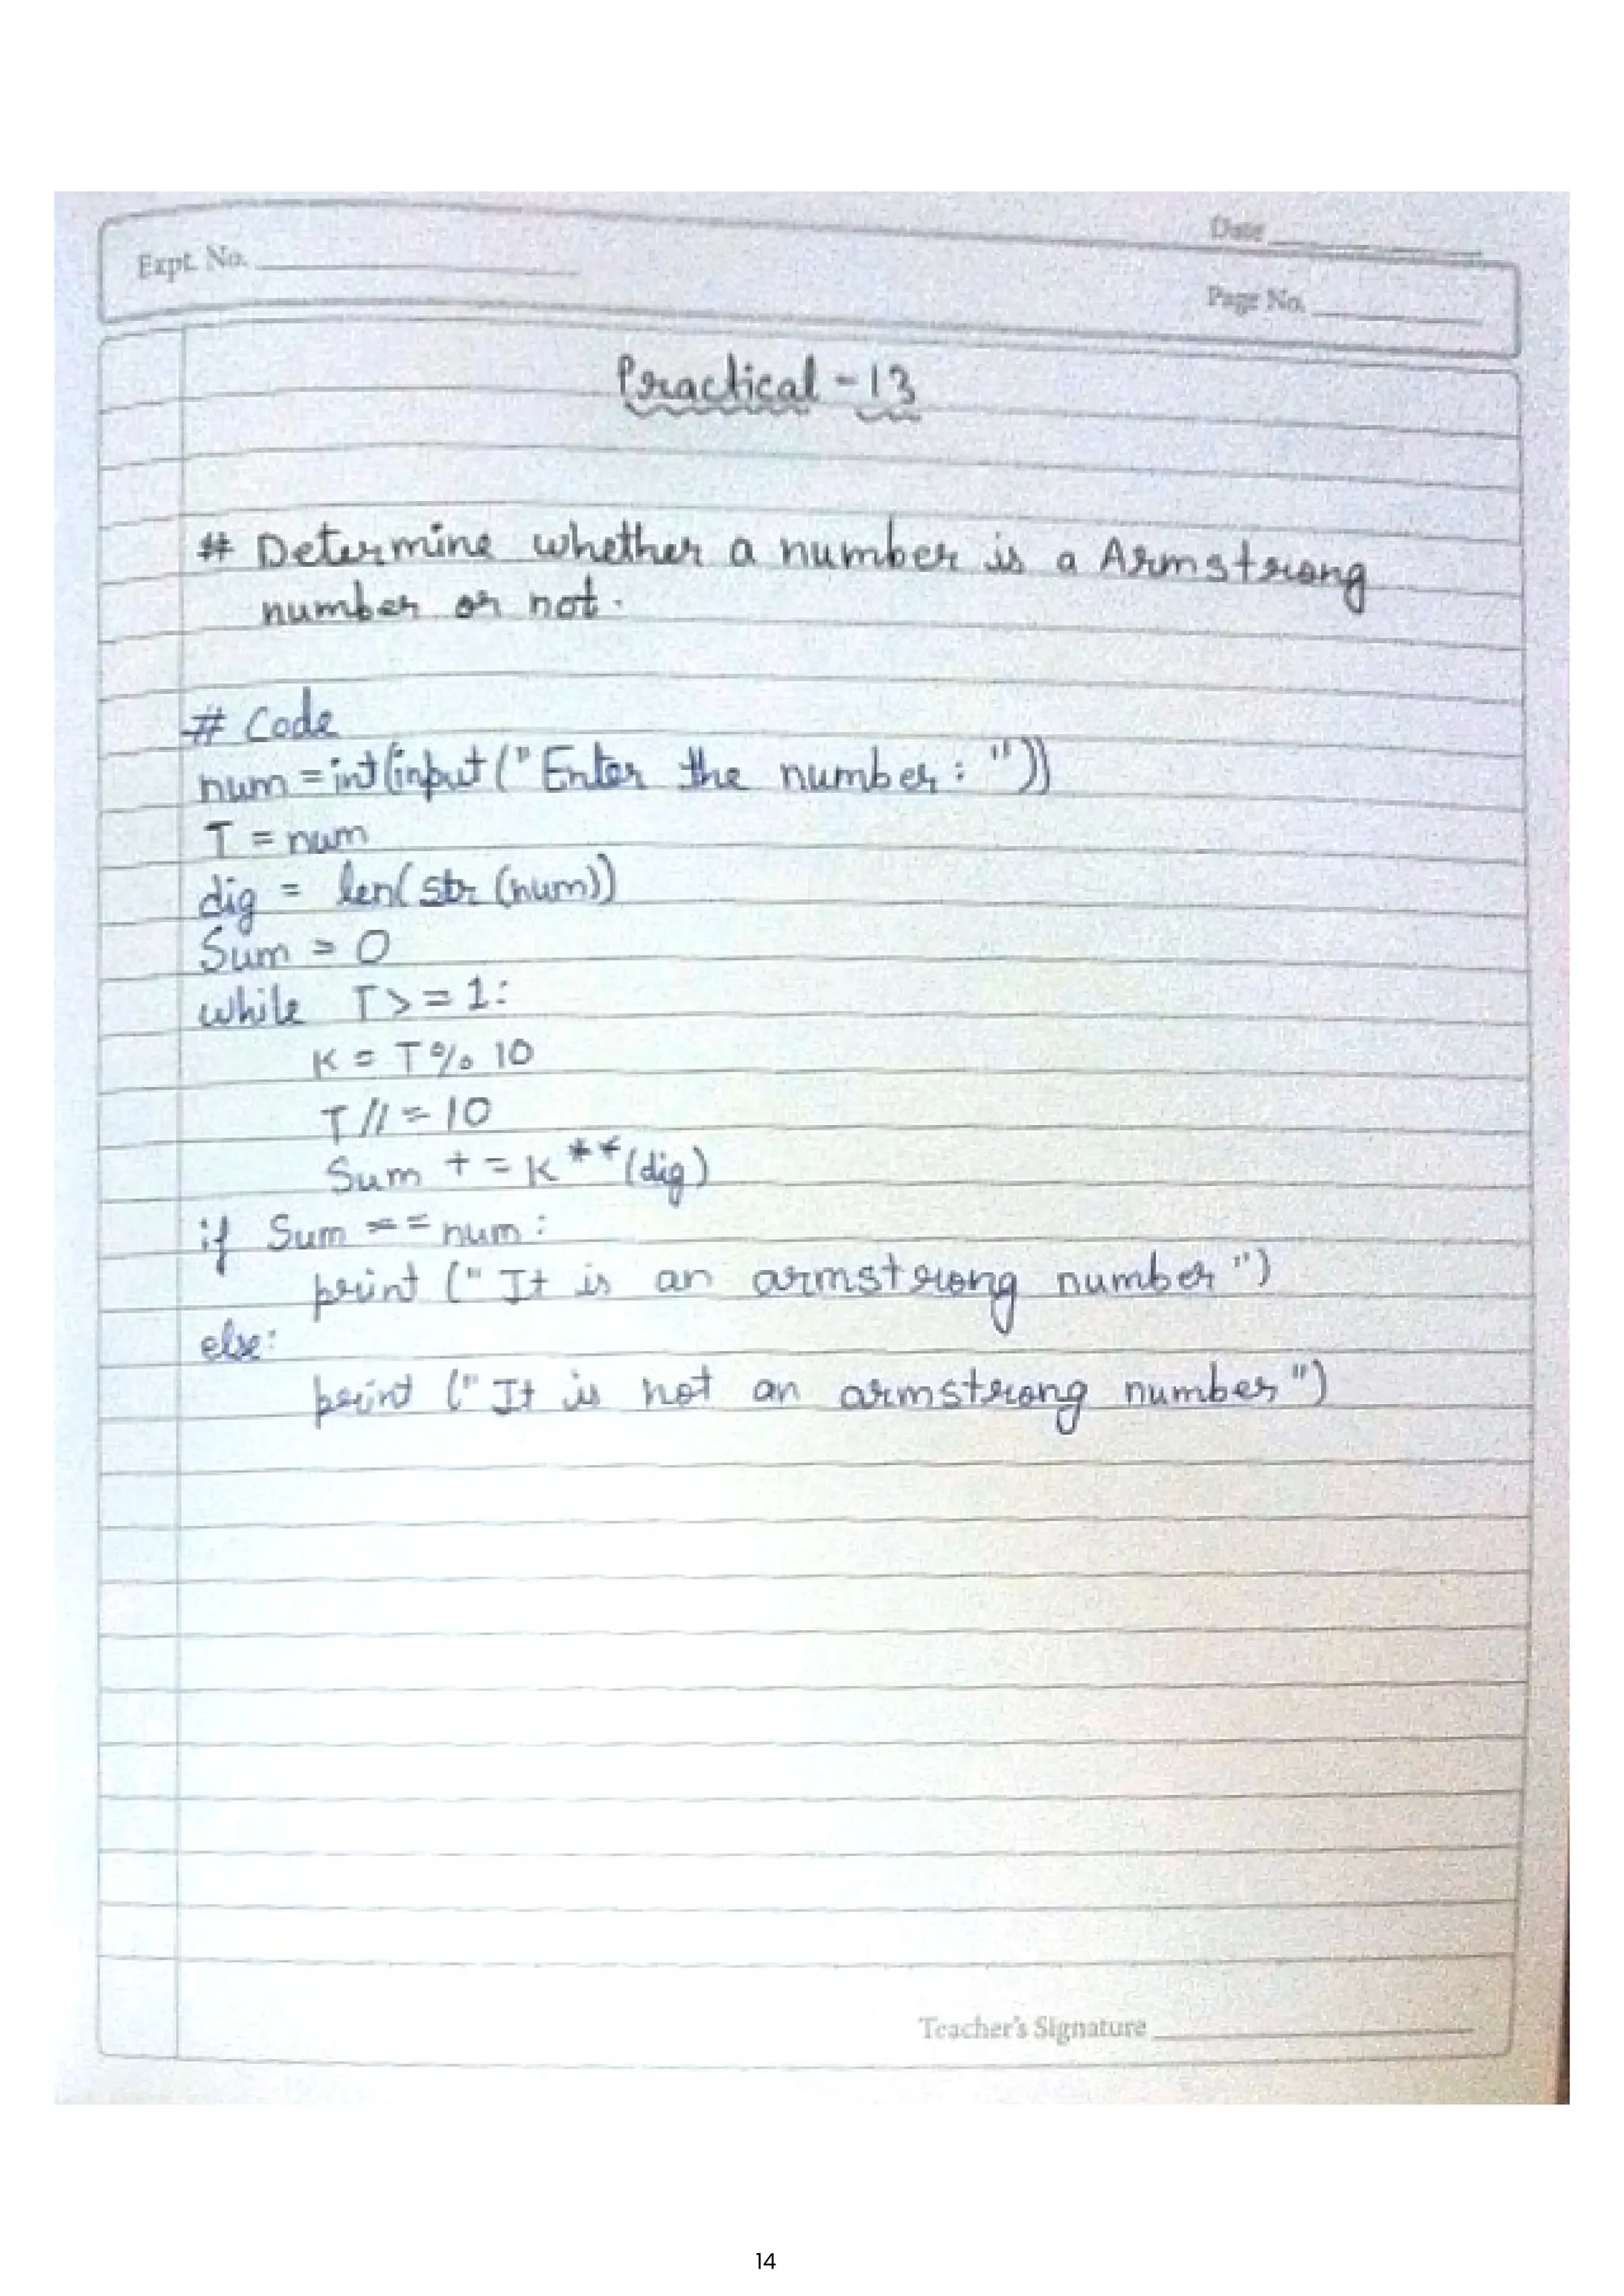 Date
Expt. No.
Page No.
Practical - 13
# Determine whether a number is a Armstrong
number or not.
# Code
num = int(input("Enter the number: "))
T = num
dig = len(str(num))
Sum = 0
while T>=1:
K = T% 10
T//=10
Sum += K**(dig)
if Sum == num:
print ("It is an armstrong number")
else:
print ("It is not an armstrong number")
Teacher's Signature
14